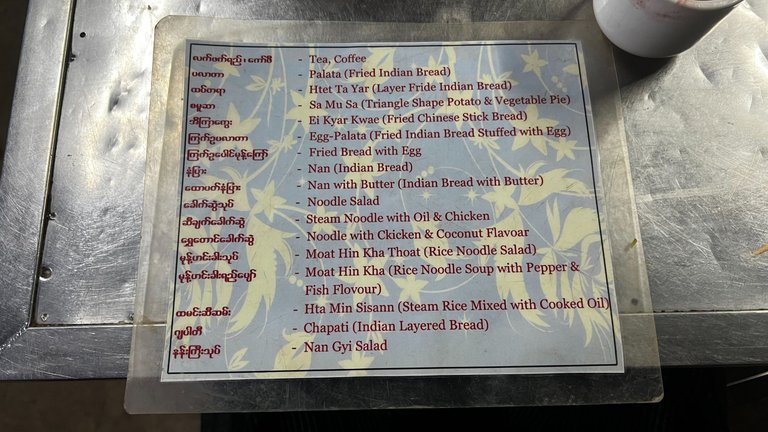 လက်ဖက်ရည်၊ ကော်ဖီ - Tea, Coffee
ပလာတာ - Palata (Fried Indian Bread)
ထပ်တရာ - Htet Ta Yar (Layer Fride Indian Bread)
စမူဆာ - Sa Mu Sa (Triangle Shape Potato & Vegetable Pie)
အီကြာကွေး - Ei Kyar Kwae (Fried Chinese Stick Bread)
ကြက်ဥပလာတာ - Egg-Palata (Fried Indian Bread Stuffed with Egg)
ကြက်ဥပေါင်မုန့်ကြော် - Fried Bread with Egg
နံပြား - Nan (Indian Bread)
ထောပတ်နံပြား - Nan with Butter (Indian Bread with Butter)
ခေါက်ဆွဲသုပ် - Noodle Salad
ဆီချက်ခေါက်ဆွဲ - Steam Noodle with Oil & Chicken
ရွှေတောင်ခေါက်ဆွဲ - Noodle with Ckicken & Coconut Flavoar
မုန့်ဟင်းခါးသုပ် - Moat Hin Kha Thoat (Rice Noodle Salad)
မုန့်ဟင်းခါးရည်ပျော် - Moat Hin Kha (Rice Noodle Soup with Pepper &
Fish Flovour)
ထမင်းဆီဆမ်း - Hta Min Sisann (Steam Rice Mixed with Cooked Oil)
ဂျပါတီ - Chapati (Indian Layered Bread)
နန်းကြီးသုပ် - Nan Gyi Salad